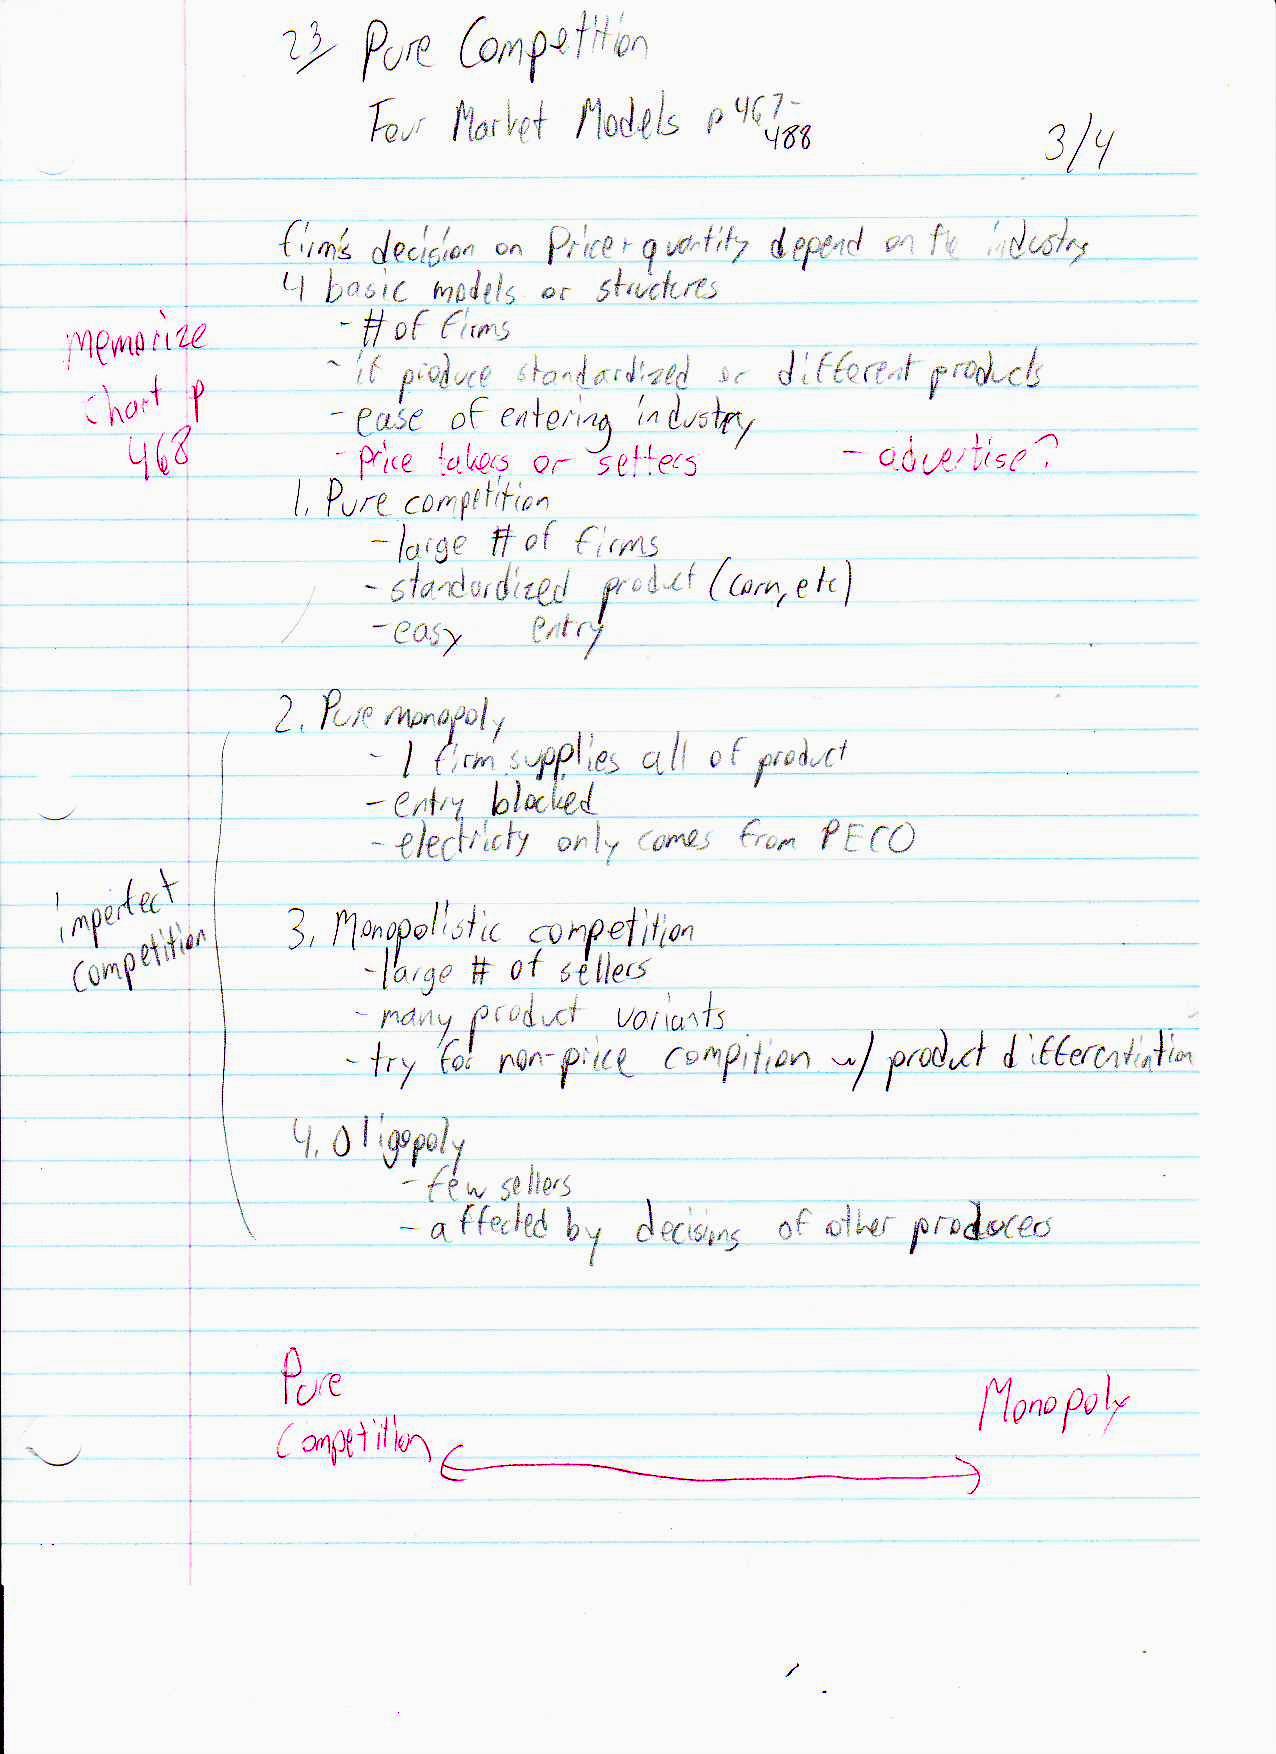 23 Pure Competition
Four Market Models p 467-
488
3/4
firm's decision on Price + quantity depend on the industry
4 basic models or structures
- # of firms
- if produce standardized or different products
- ease of entering industry
- price takers or setters - advertise?
memorize
chart p
468
1. Pure competition
- large # of firms
- standardized product (corn, etc)
- easy entry
2. Pure monopoly
- 1 firm supplies all of product
- entry blocked
- electricty only comes from PECO
imperfect
competition
3. Monopolistic competition
- large # of sellers
- many product variants
- try for non-price compition w/ product differentiation
4. Oligopoly
- few sellers
- affected by decisions of other producers
Pure
Competition
Monopoly